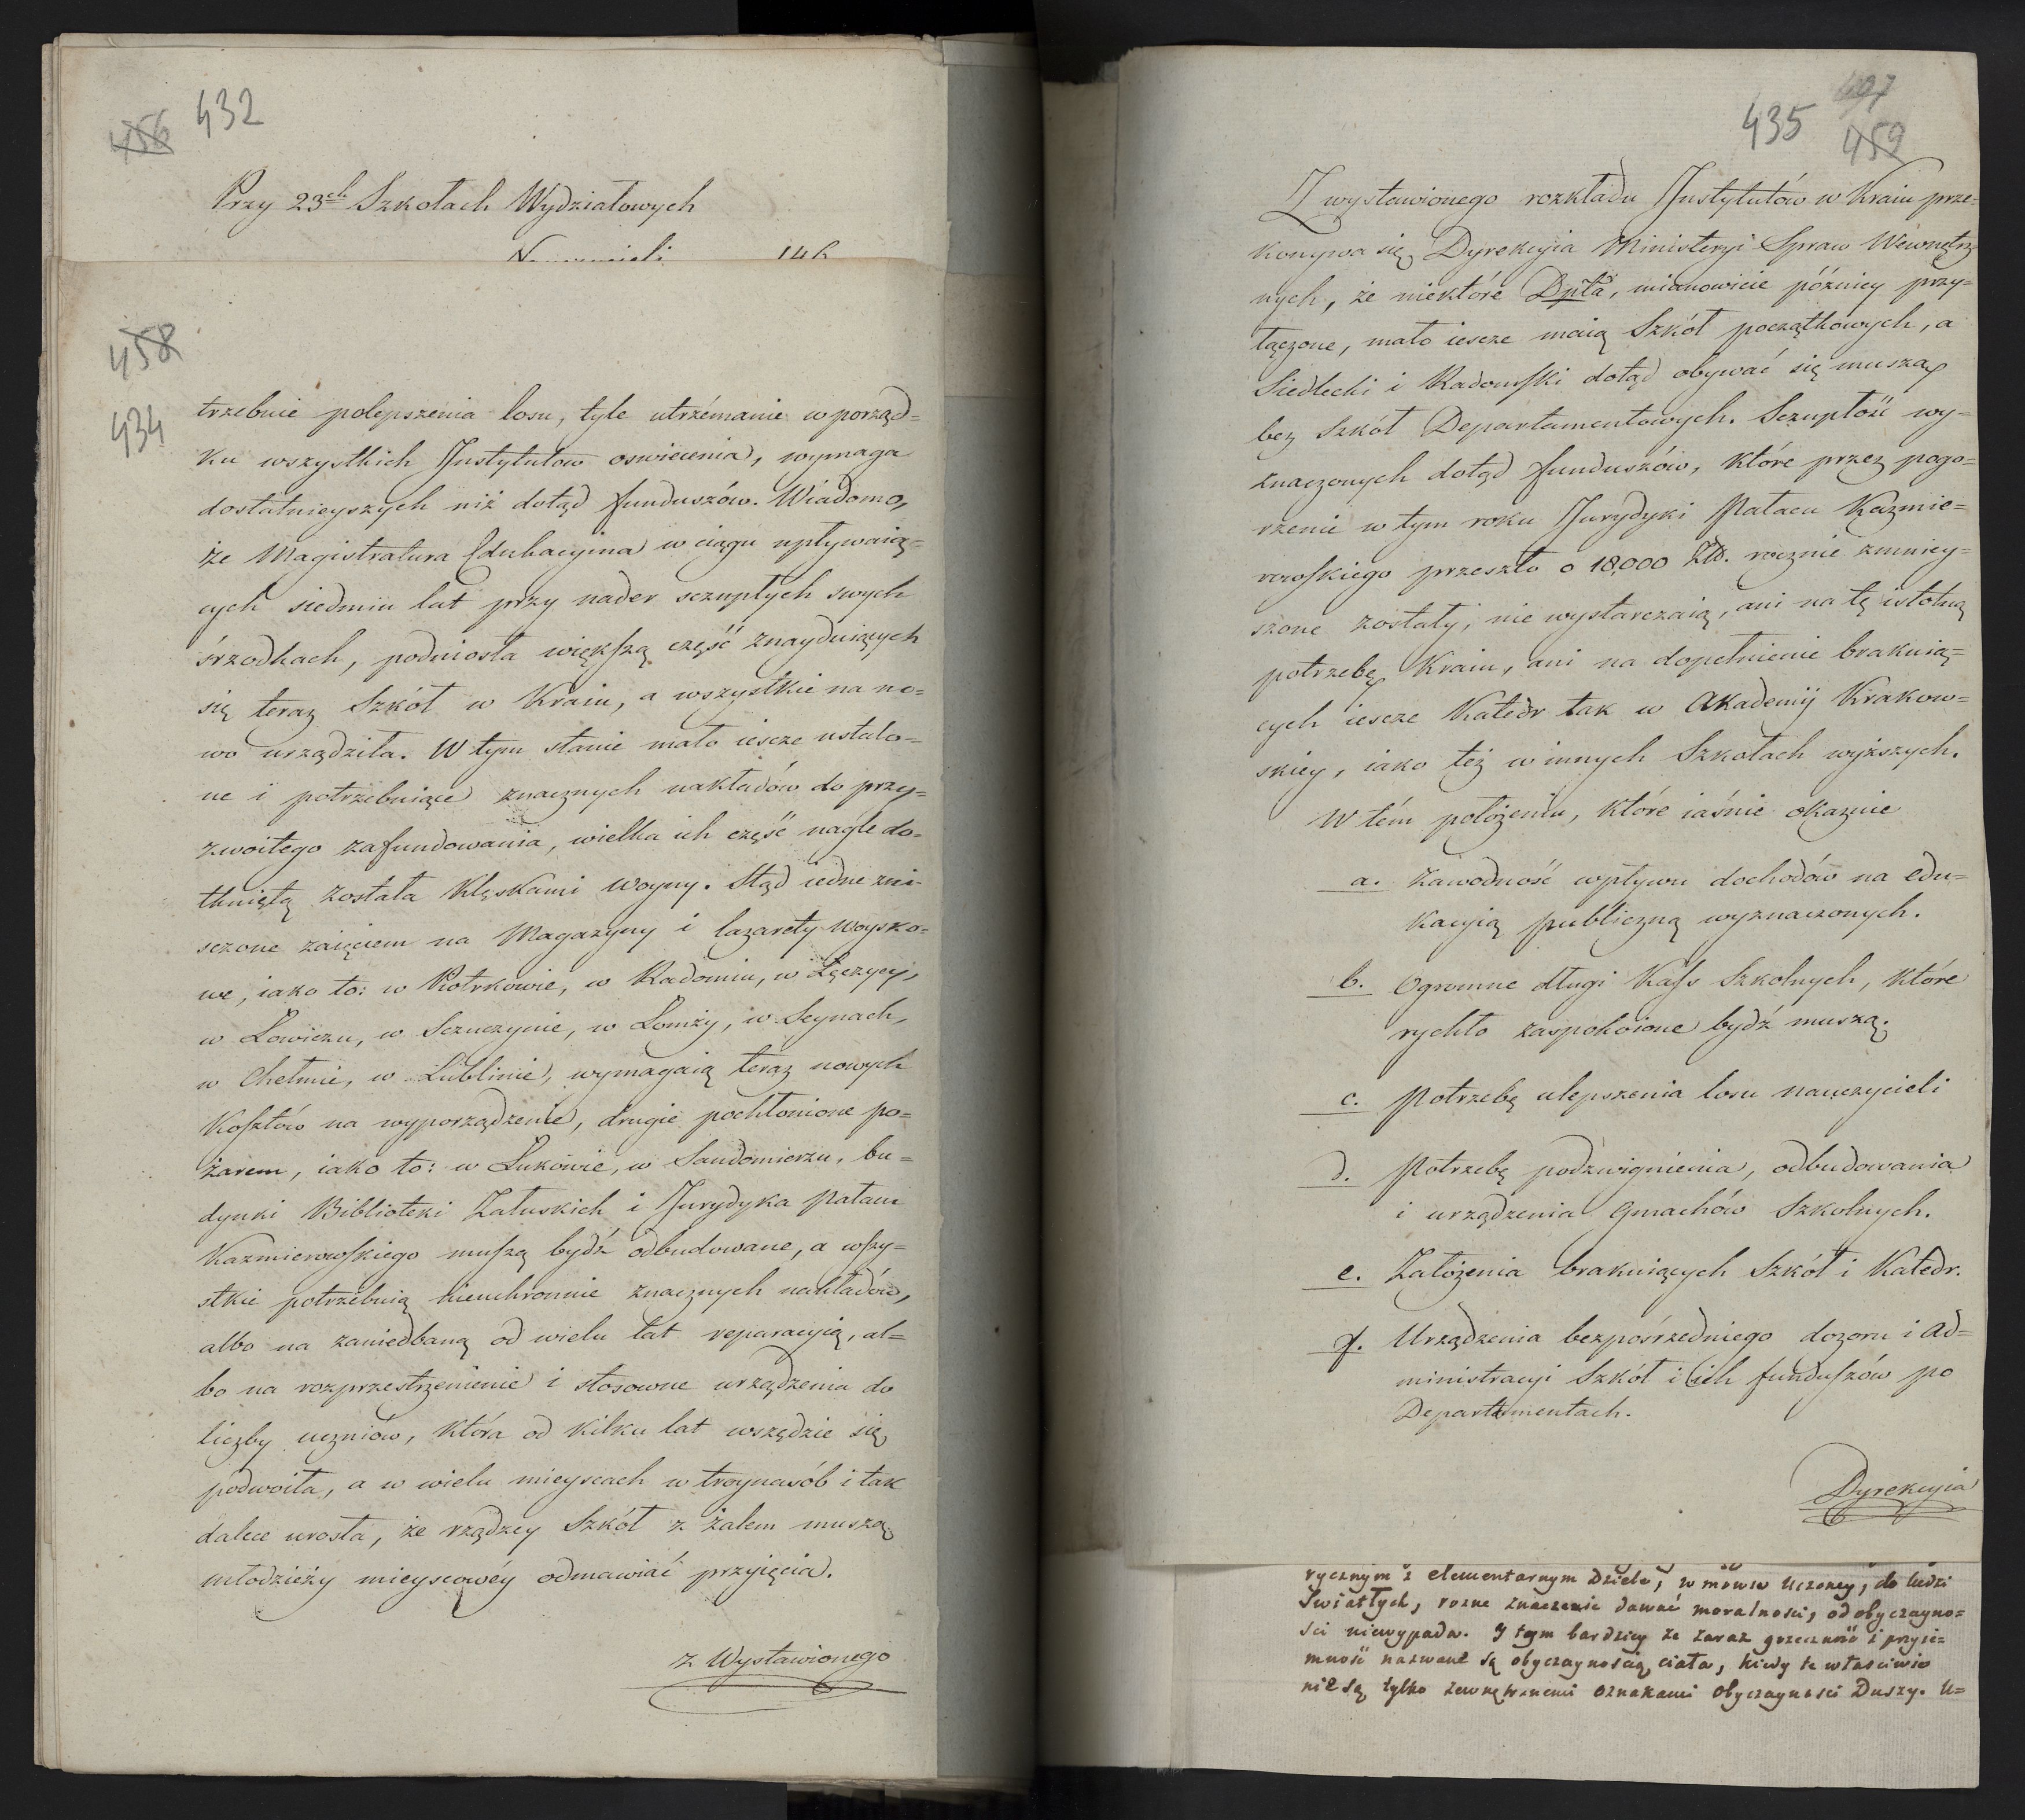 456 432
Przy 23ch Szkołach Wydziałowych
Nauczycieli 146
458
434
trzebnie polepszenia losu, tyle utrzémanie w porząd=
ku wszystkich Jnstytutow oswiecenia, wymaga
dostatnieyszych niż dotąd funduszów. Wiadomo,
że Magistratura Edukacyina w ciągu upływaią=
cych siedmiu lat przy nader szczupłych swych
śrzodkach, podniosła więkſzą część znayduiących
się teraz Szkół w Kraiu, a wszystkie na no=
wo urządziła. W tym stanie mało ieszcze ustalo=
ne i potrzebuiące znacznych nakładów do przy=
zwoitego zafundowania, wielka ich część nagle do=
tkniętą została klęskami woyny. Stąd iedne zni=
sczone zaięciem na Magazyny i lazarety woysko=
we, iako to: w Piotrkowie, w Radomiu, w Łęczycy,
w Łowiczu, w Sczuczynie, w Łomży, w Seynach,
w Chełmie, w Lublinie, wymagaią teraz nowych
Koſztów na wyporządzenie, drugie pochłonione po=
żarem, iako to: w Łukowie, w Sandomierzu, bu=
dynki Biblioteki Załuskich i Jurydyka Pałacu
Kazmierowſkiego muſzą bydź odbudowane, a wſzy=
stkie potrzebuią nieuchronnie znacznych nakładów,
albo na zaniedbaną od wielu lat reparacyią, al=
bo na rozprzestrzenienie i stosowne urządzenia do
liczby uczniów, która od kilku lat wszędzie się
podwoiła, a w wielu mieyscach w troynasób i tak
dalece urosła, że rządzcy Szkół z żalem muszą
młodzieży mieyscowéy odmawiać przyięcia.
z Wystawionego
435 459
Z wystawionego rozkładu Jnstytutów w Kraiu prze=
konywa się Dyrekcyia Ministeryi Spraw Wewnętrz
nych, że niektóre Dpta, mianowicie późniey przy=
łączone, mało iescze maią Szkół początkowych, a
Siedlecki i Radomſki dotąd obywać się muszą
bez Szkół Departamentowych. Sczupłość wy=
znaczonych dotąd funduszów, które przez pogo=
rzenie w tym roku Jurydyki Pałacu Kazmie=
rowſkiego przeszło o 18,000 Złt. rocznie zmniey=
szone zostały, nie wystarczaią, ani na tę istotną
potrzebę Kraiu, ani na dopełnienie brakuią=
cych iescze Katedr tak w Akademij Krakow=
skiey, iako też w innych Szkołach wyższych.
W tém położeniu, które iaśnie okazuie
a. Zawodność wpływu dochodów na edu=
kacyią publiczną wyznaczonych.
b. Ogromne długi Kaſs Szkolnych, które
rychło zaspokoione bydź muszą.
c. Potrzebę ulepszenia losu nauczycieli
d. Potrzebę podzwignienia, odbudowania
i urządzenia gmachów Szkolnych.
e. Założenia brakuiących Szkół i Katedr.
f. Urządzenia bezpośrzedniego dozoru i ad=
ministracyi Szkół i ich funduſzów po
Departamentach.
Dyrekcyia
rycznym i elementarnym Dziele, w mowie Uczoney, do ludzi
Swiatłych, rozne znaczenie dawać moralnosci, od obyczayno=
sci niewypada. Y tym bardziey ze zaraz grzeczność i przyie=
mność nazwane są obyczaynoscią ciała, kiedy te własciwie
nie są tylko zewnętrznemi oznakami obyczaynosci Duszy. U=